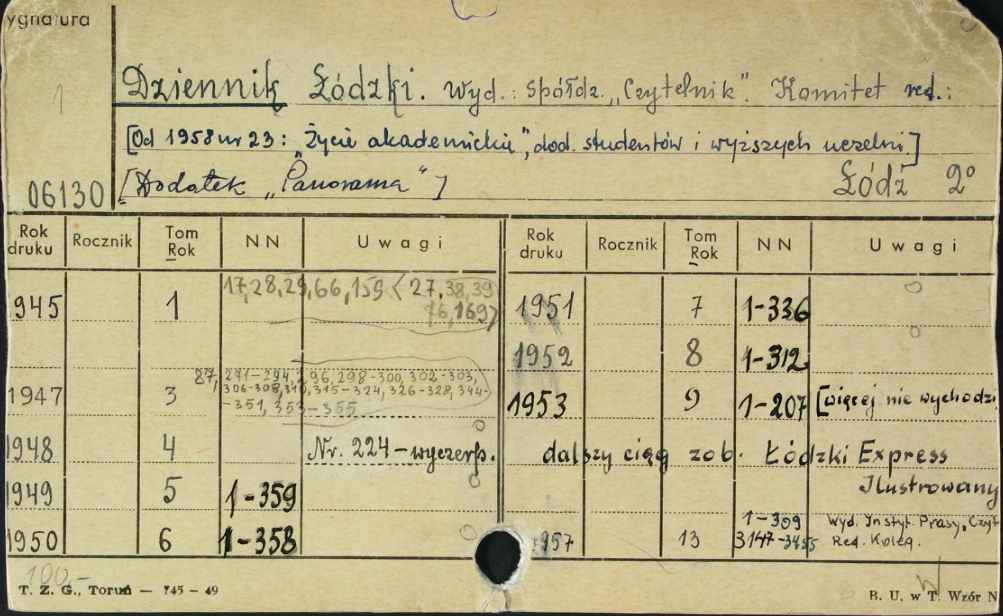 ygnatura
1
Dziennik Łódzki. Wyd.: Spółdz. „Czytelnik". Komitet red.:
[Od 1958 nr 23: „Życie akademickie", dod. studentów i wyższych uczelni.]
[Dodatek „Panorama"]
Łódź 2°
06130
Rok druku Rocznik Tom Rok NN Uwagi Rok druku Rocznik Tom Rok NN Uwagi
945 1 17, 28, 29, 66, 159 (27, 38, 39
76, 169)
1951 7 1-336
1952 8 1-312
1947 3 87, 291-294, 296, 298-300, 302-303,
306-308, 315-324, 326-328, 344-
-351, 353-355
1953 9 1-207 [więcej nie wychodzi
1948 4 Nr. 224 - wyczerp.
dalszy ciąg zob. Łódzki Express
Ilustrowany
1949 5 1-359
1950 6 1-358
1957 13 1-309
3147-3455
Wyd. Instyt. Prasy „Czyt
Red. Koleg.
100,-
T. Z. G., Toruń — 745 - 49
B. U. w T. Wzór N